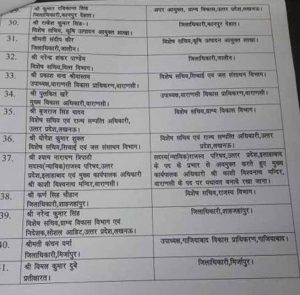 श्री रविकान्त सिंह
जिलाधिकारी,कानपुर देहात।
अपर आयुक्त, ग्राम्य विकास, उत्तर प्रदेश,लखनऊ।
30.
श्री राकेश कुमार सिंह-।
विशेष सचिव, कृषि उत्पादन आयुक्त शाखा।
जिलाधिकारी,कानपुर देहात।
31.
श्रीमती संदीप कौर
जिलाधिकारी,जालौन।
विशेष सचिव,कृषि उत्पादन आयुक्त शाखा।
32.
श्री नरेन्द्र शंकर पाण्डेय
विशेष सचिव,वित्त विभाग।
जिलाधिकारी,जालौन।
33.
श्री प्रकाश चन्द्र श्रीवास्तव
उपाध्यक्ष,वाराणसी विकास प्राधिकरण,वाराणसी।
विशेष सचिव,सिंचाई एवं जल संसाधन विभाग।
34.
श्री पुलकित खरे
मुख्य विकास अधिकारी,वाराणसी।
उपाध्यक्ष,वाराणसी विकास प्राधिकरण,वाराणसी।
35.
श्री बृजराज सिंह यादव
विशेष सचिव एवं राज्य सम्पत्ति अधिकारी,
उत्तर प्रदेश,लखनऊ।
विशेष सचिव,ग्राम्य विकास विभाग।
36.
श्री योगेश कुमार शुक्ल
विशेष सचिव,सिंचाई एवं जल संसाधन विभाग।
विशेष सचिव एवं राज्य सम्पत्ति अधिकारी, उत्तर प्रदेश,लखनऊ।
37.
श्री श्याम नारायण त्रिपाठी
सदस्य(न्यायिक)राजस्व परिषद,उत्तर
प्रदेश,इलाहाबाद एवं मुख्य कार्यपालक अधिकारी
श्री काशी विश्वनाथ मन्दिर,वाराणसी।
सदस्य(न्यायिक)राजस्व परिषद,उत्तर प्रदेश,इलाहाबाद
के पद के प्रभार से अवमुक्त करते हुए मुख्य
कार्यपालक अधिकारी श्री काशी विश्वनाथ मन्दिर,
वाराणसी के पद पर यथावत बनाये रखा जाना।
38.
श्री कर्ण सिंह चौहान
जिलाधिकारी,शाहजहांपुर।
विशेष सचिव,राजस्व विभाग।
39.
श्री नरेन्द्र कुमार सिंह
विशेष सचिव,ग्राम्य विकास विभाग एवं
निदेशक,सोशल आडिट,उत्तर प्रदेश,लखनऊ।
जिलाधिकारी,शाहजहांपुर।
40.
श्रीमती कंचन वर्मा
जिलाधिकारी,मिर्जापुर।
उपाध्यक्ष,गाजियाबाद विकास प्राधिकरण,गाजियाबाद।
1.
श्री विमल कुमार दुबे
प्रतीक्षारत।
जिलाधिकारी,मिर्जापुर।